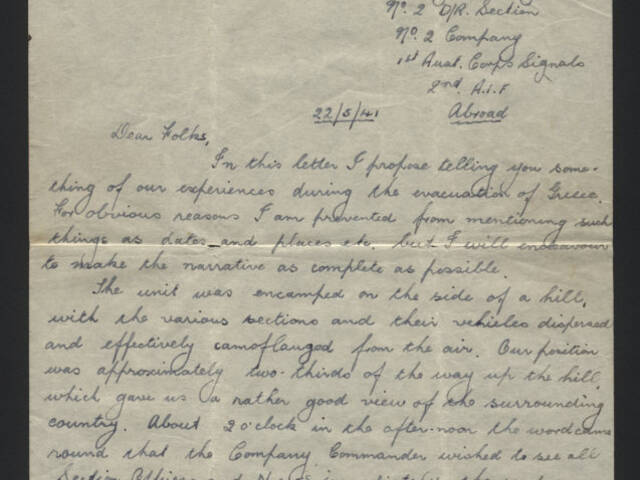 No. 2 D/R. Section
No. 2 Company
1st Aust. Corps Signals
2nd A.I.F
22/5/41 Abroad
Dear Folks,
In this letter I propose telling you some-
thing of our experiences during the evacuation of Greece.
For obvious reasons I am prevented from mentioning such
things as dates and places etc. but I will endeavour
to make the narrative as complete as possible.
The unit was encamped on the side of a hill,
with the various sections and their vehicles dispersed
and effectively camoflauged from the air. Our position
was approximately two-thirds of the way up the hill,
which gave us a rather good view of the surrounding
country. About 2 o'clock in the after-noon the word came
round that the Company Commander wished to see all
Section Officers and